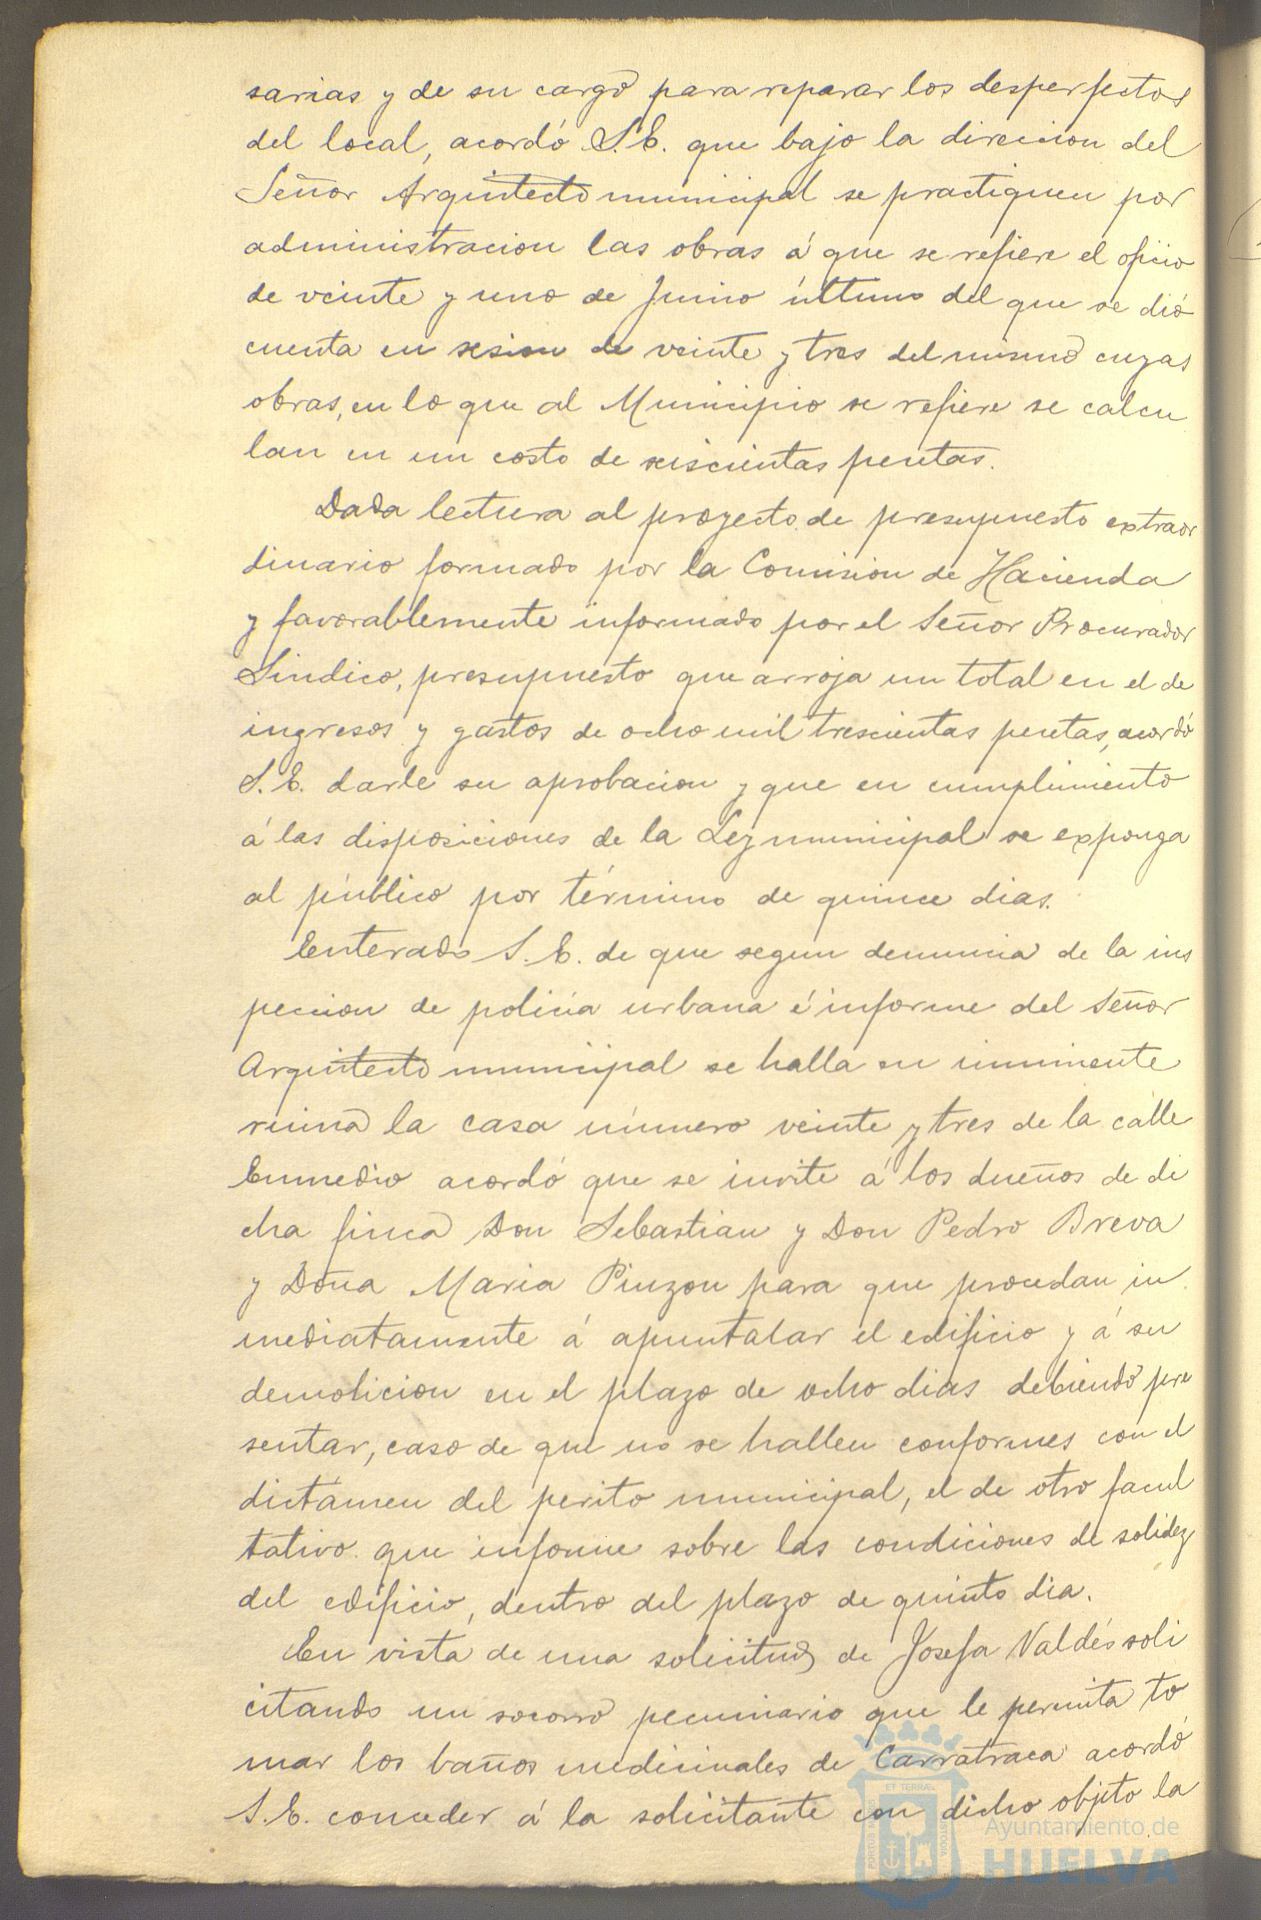 sarias y de su cargo para reparar los desperfectos
del local, acordó S.E. que bajo la direccion del
Señor Arquitecto municipal se practiquen por
administracion las obras á que se refiere el oficio
de veinte y uno de Junio último del que se dió
cuenta en sesion de veinte y tres del mismo cuyas
obras, en lo que al Municipio se refiere se calcu
lan en un costo de seiscientas pesetas.
Dada lectura al proyecto de presupuesto extraor
dinario formado por la Comision de Hacienda
y favorablemente informado por el Señor Procurador
Sindico, presupuesto que arroja un total en el de
ingresos y gastos de ocho mil trescientas pesetas, acordó
S.E. darle su aprobacion y que en cumplimiento
á las disposiciones de la Ley municipal se exponga
al público por término de quince dias.
Enterado S.E. de que segun denuncia de la ins
peccion de policia urbana é informe del Señor
Arquitecto municipal se halla en inminente
ruina la casa número veinte y tres de la calle
Enmedio acordó que se invite á los dueños de di
cha finca Don Sebastian y Don Pedro Breva
y Doña Maria Pinzon para que procedan in
mediatamente á apuntalar el edificio y á su
demolicion en el plazo de ocho dias debiendo pre
sentar, caso de que no se hallen conformes con el
dictámen del perito municipal, el de otro facul
tativo que informe sobre las condiciones de solidez
del edificio, dentro del plazo de quinto dia.
En vista de una solicitud de Josefa Valdés soli
citando un socorro pecuniario que le permita to
mar los baños medicinales de Carratraca acordó
S.E. conceder á la solicitante con dicho objeto la
Ayuntamiento de
HUELVA